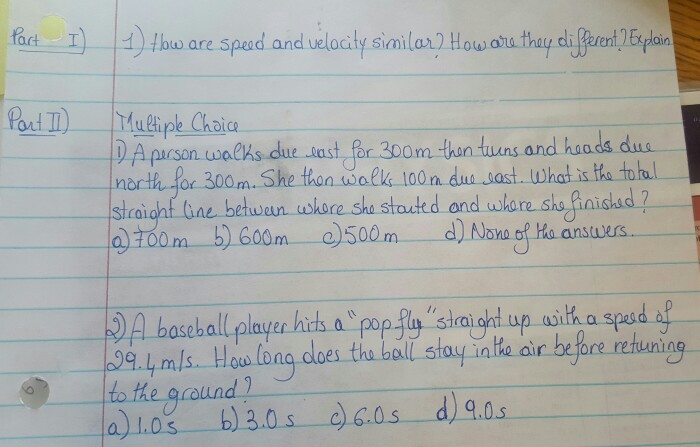 Part I) 1) How are speed and velocity similar? How are they different? Explain
Part II) Multiple Choice
1) A person walks due east for 300m then turns and heads due
north for 300m. She then walks 100m due east. What is the total
straight line between where she started and where she finished?
a) 700m b) 600m c) 500m d) None of the answers.
2) A baseball player hits a "pop fly" straight up with a speed of
29.4 m/s. How long does the ball stay in the air before returning
to the ground?
a) 1.0s b) 3.0s c) 6.0s d) 9.0s